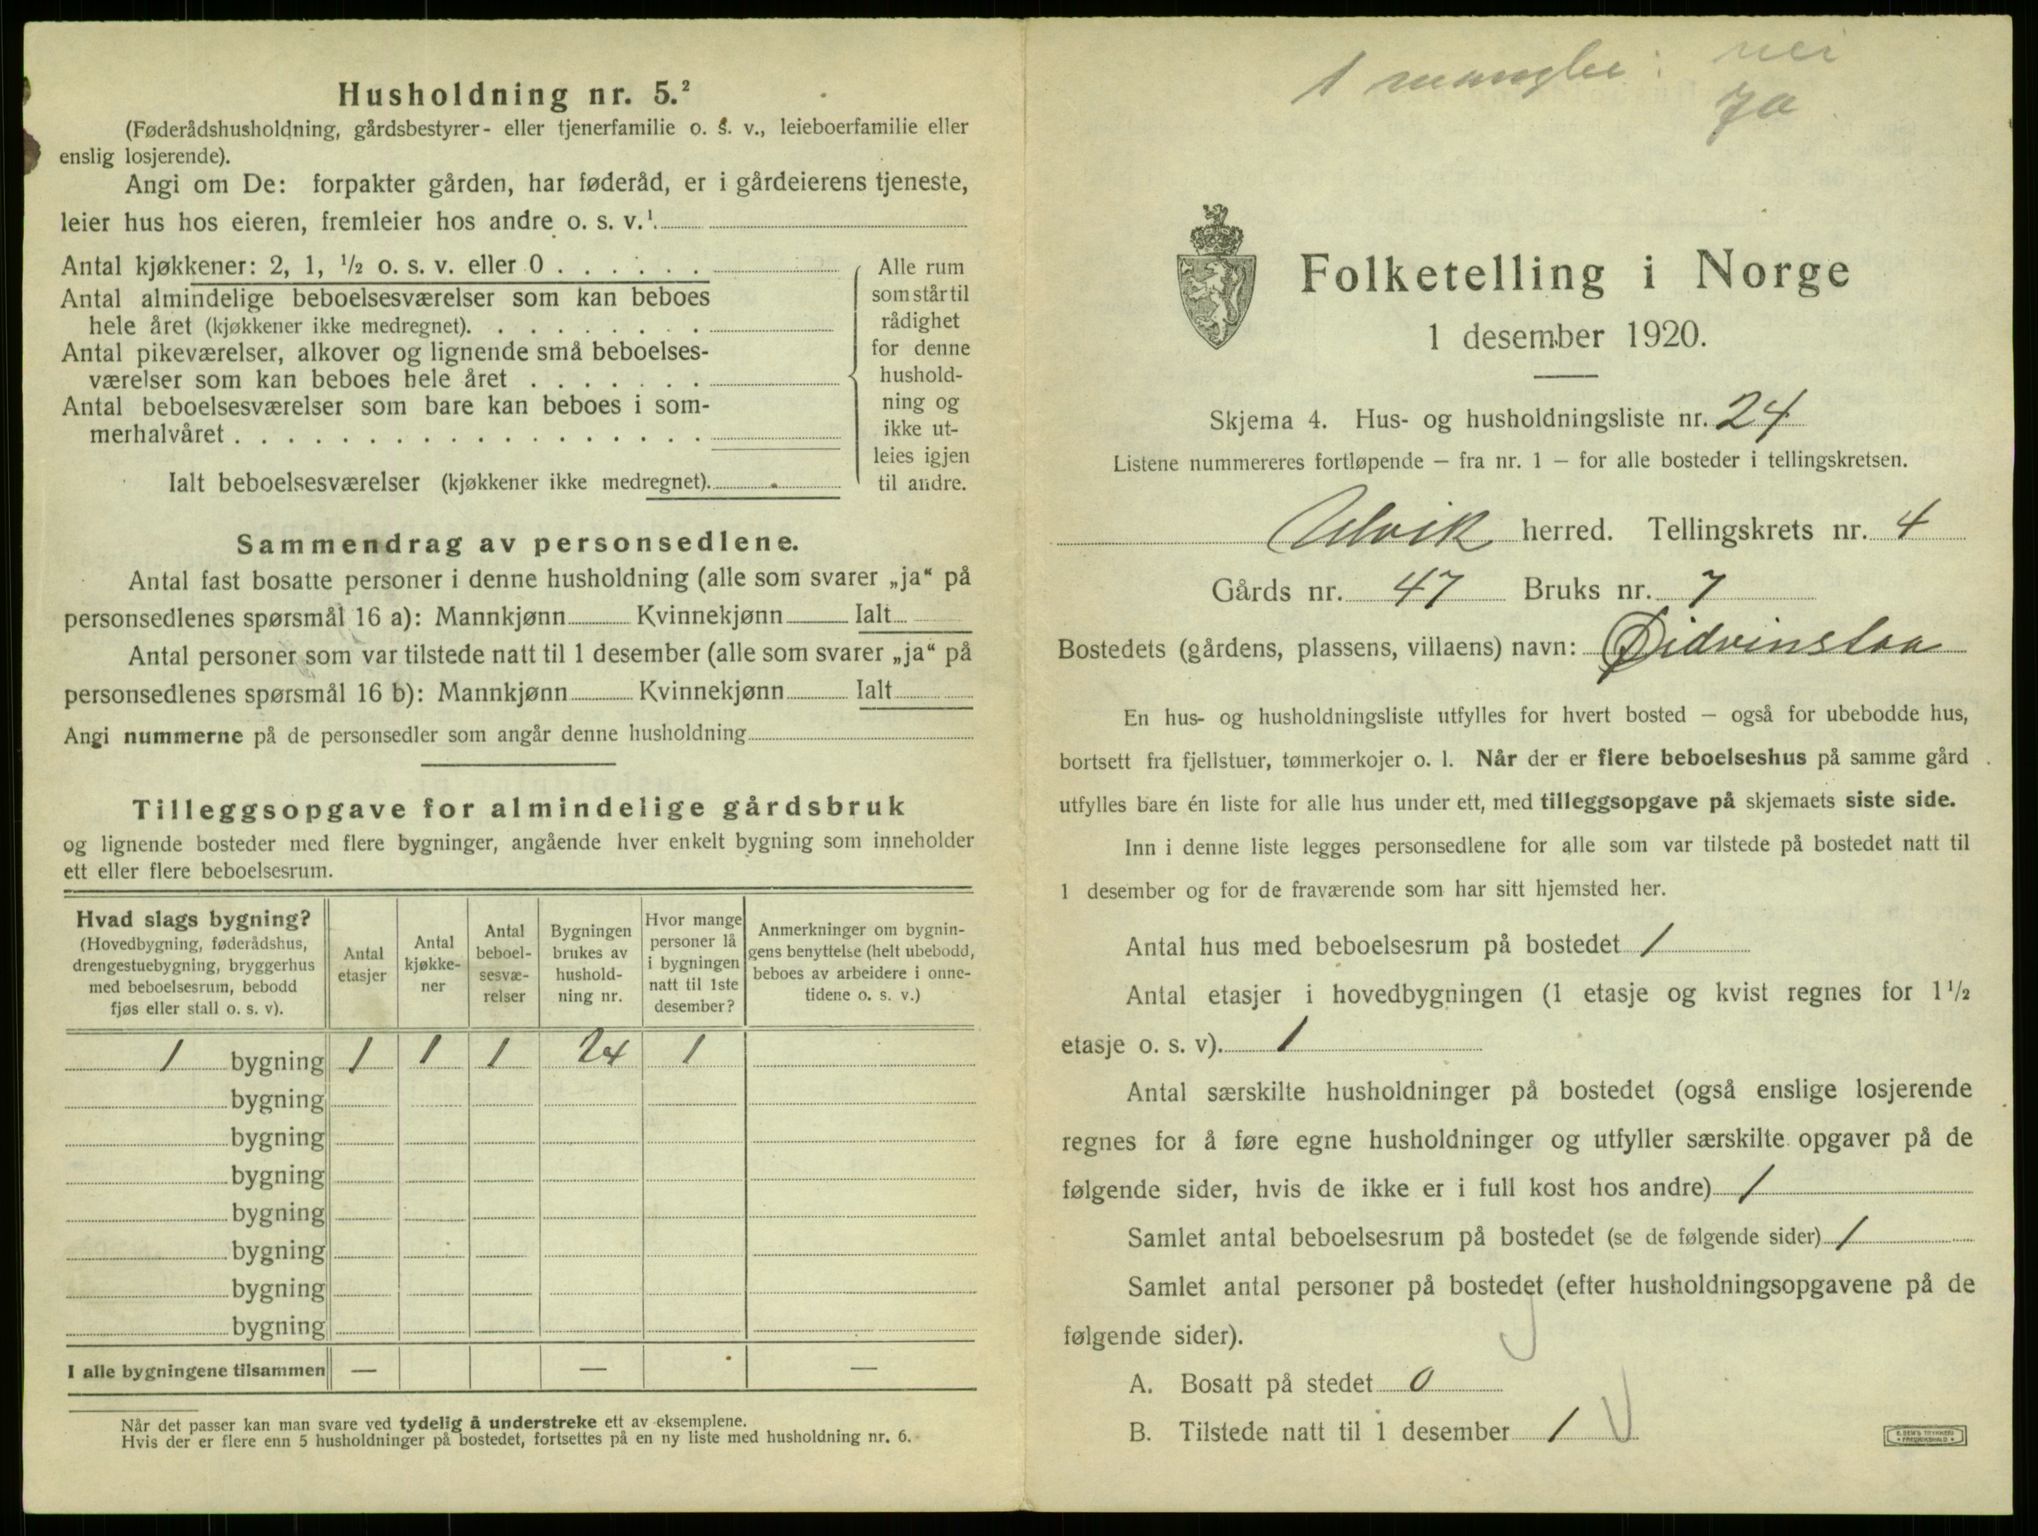 Husholdning nr. 5.²
(Føderådshusholdning, gårdsbestyrer- eller tjenerfamilie o. s. v., leieboerfamilie eller
enslig losjerende).
Angi om De: forpakter gården, har føderåd, er i gårdeierens tjeneste,
leier hus hos eieren, fremleier hos andre o. s. v.¹
Antal kjøkkener: 2, 1, ½ o. s. v. eller 0
Antal almindelige beboelsesværelser som kan beboes
hele året (kjøkkener ikke medregnet).
Antal pikeværelser, alkover og lignende små beboelses-
værelser som kan beboes hele året
Antal beboelsesværelser som bare kan beboes i som-
merhalvåret
Ialt beboelsesværelser (kjøkkener ikke medregnet).
Alle rum
som står til
rådighet
for denne
hushold-
ning og
ikke ut-
leies igjen
til andre.
Sammendrag av personsedlene.
Antal fast bosatte personer i denne husholdning (alle som svarer „ja“ på
personsedlenes spørsmål 16 a): Mannkjønn Kvinnekjønn Ialt
Antal personer som var tilstede natt til 1 desember (alle som svarer „ja“ på
personsedlenes spørsmål 16 b): Mannkjønn Kvinnekjønn Ialt
Angi nummerne på de personsedler som angår denne husholdning
Tilleggsopgave for almindelige gårdsbruk
og lignende bosteder med flere bygninger, angående hver enkelt bygning som inneholder
ett eller flere beboelsesrum.
Hvad slags bygning?
(Hovedbygning, føderådshus,
drengestuebygning, bryggerhus
med beboelsesrum, bebodd
fjøs eller stall o. s. v).
Antal
etasjer
Antal
kjøkke-
ner
Antal
beboel-
sesvæ-
relser
Bygningen
brukes av
hushold-
ning nr.
Hvor mange
personer lå
i bygningen
natt til 1ste
desember?
Anmerkninger om bygnin-
gens benyttelse (helt ubebodd,
beboes av arbeidere i onne-
tidene o. s. v.)
1 bygning 1 1 1 24 1
bygning
bygning
bygning
bygning
bygning
bygning
bygning
I alle bygningene tilsammen — — —
Når det passer kan man svare ved tydelig å understreke ett av eksemplene.
Hvis der er flere enn 5 husholdninger på bostedet, fortsettes på en ny liste med husholdning nr. 6.
1 mangler: nei
ja
Folketelling i Norge
1 desember 1920.
Skjema 4. Hus- og husholdningsliste nr. 24
Listene nummereres fortløpende — fra nr. 1 — for alle bosteder i tellingskretsen.
Ulvik herred. Tellingskrets nr. 4
Gårds nr. 47 Bruks nr. 7
Bostedets (gårdens, plassens, villaens) navn:
En hus- og husholdningsliste utfylles for hvert bosted — også for ubebodde hus,
bortsett fra fjellstuer, tømmerkojer o. l. Når der er flere beboelseshus på samme gård
utfylles bare én liste for alle hus under ett, med tilleggsopgave på skjemaets siste side.
Inn i denne liste legges personsedlene for alle som var tilstede på bostedet natt til
1 desember og for de fraværende som har sitt hjemsted her.
Antal hus med beboelsesrum på bostedet 1
Antal etasjer i hovedbygningen (1 etasje og kvist regnes for 1½
etasje o. s. v). 1
Antal særskilte husholdninger på bostedet (også enslige losjerende
regnes for å føre egne husholdninger og utfyller særskilte opgaver på de
følgende sider, hvis de ikke er i full kost hos andre) 1
Samlet antal beboelsesrum på bostedet (se de følgende sider) 1
Samlet antal personer på bostedet (efter husholdningsopgavene på de
følgende sider).
A. Bosatt på stedet 0
B. Tilstede natt til 1 desember 1